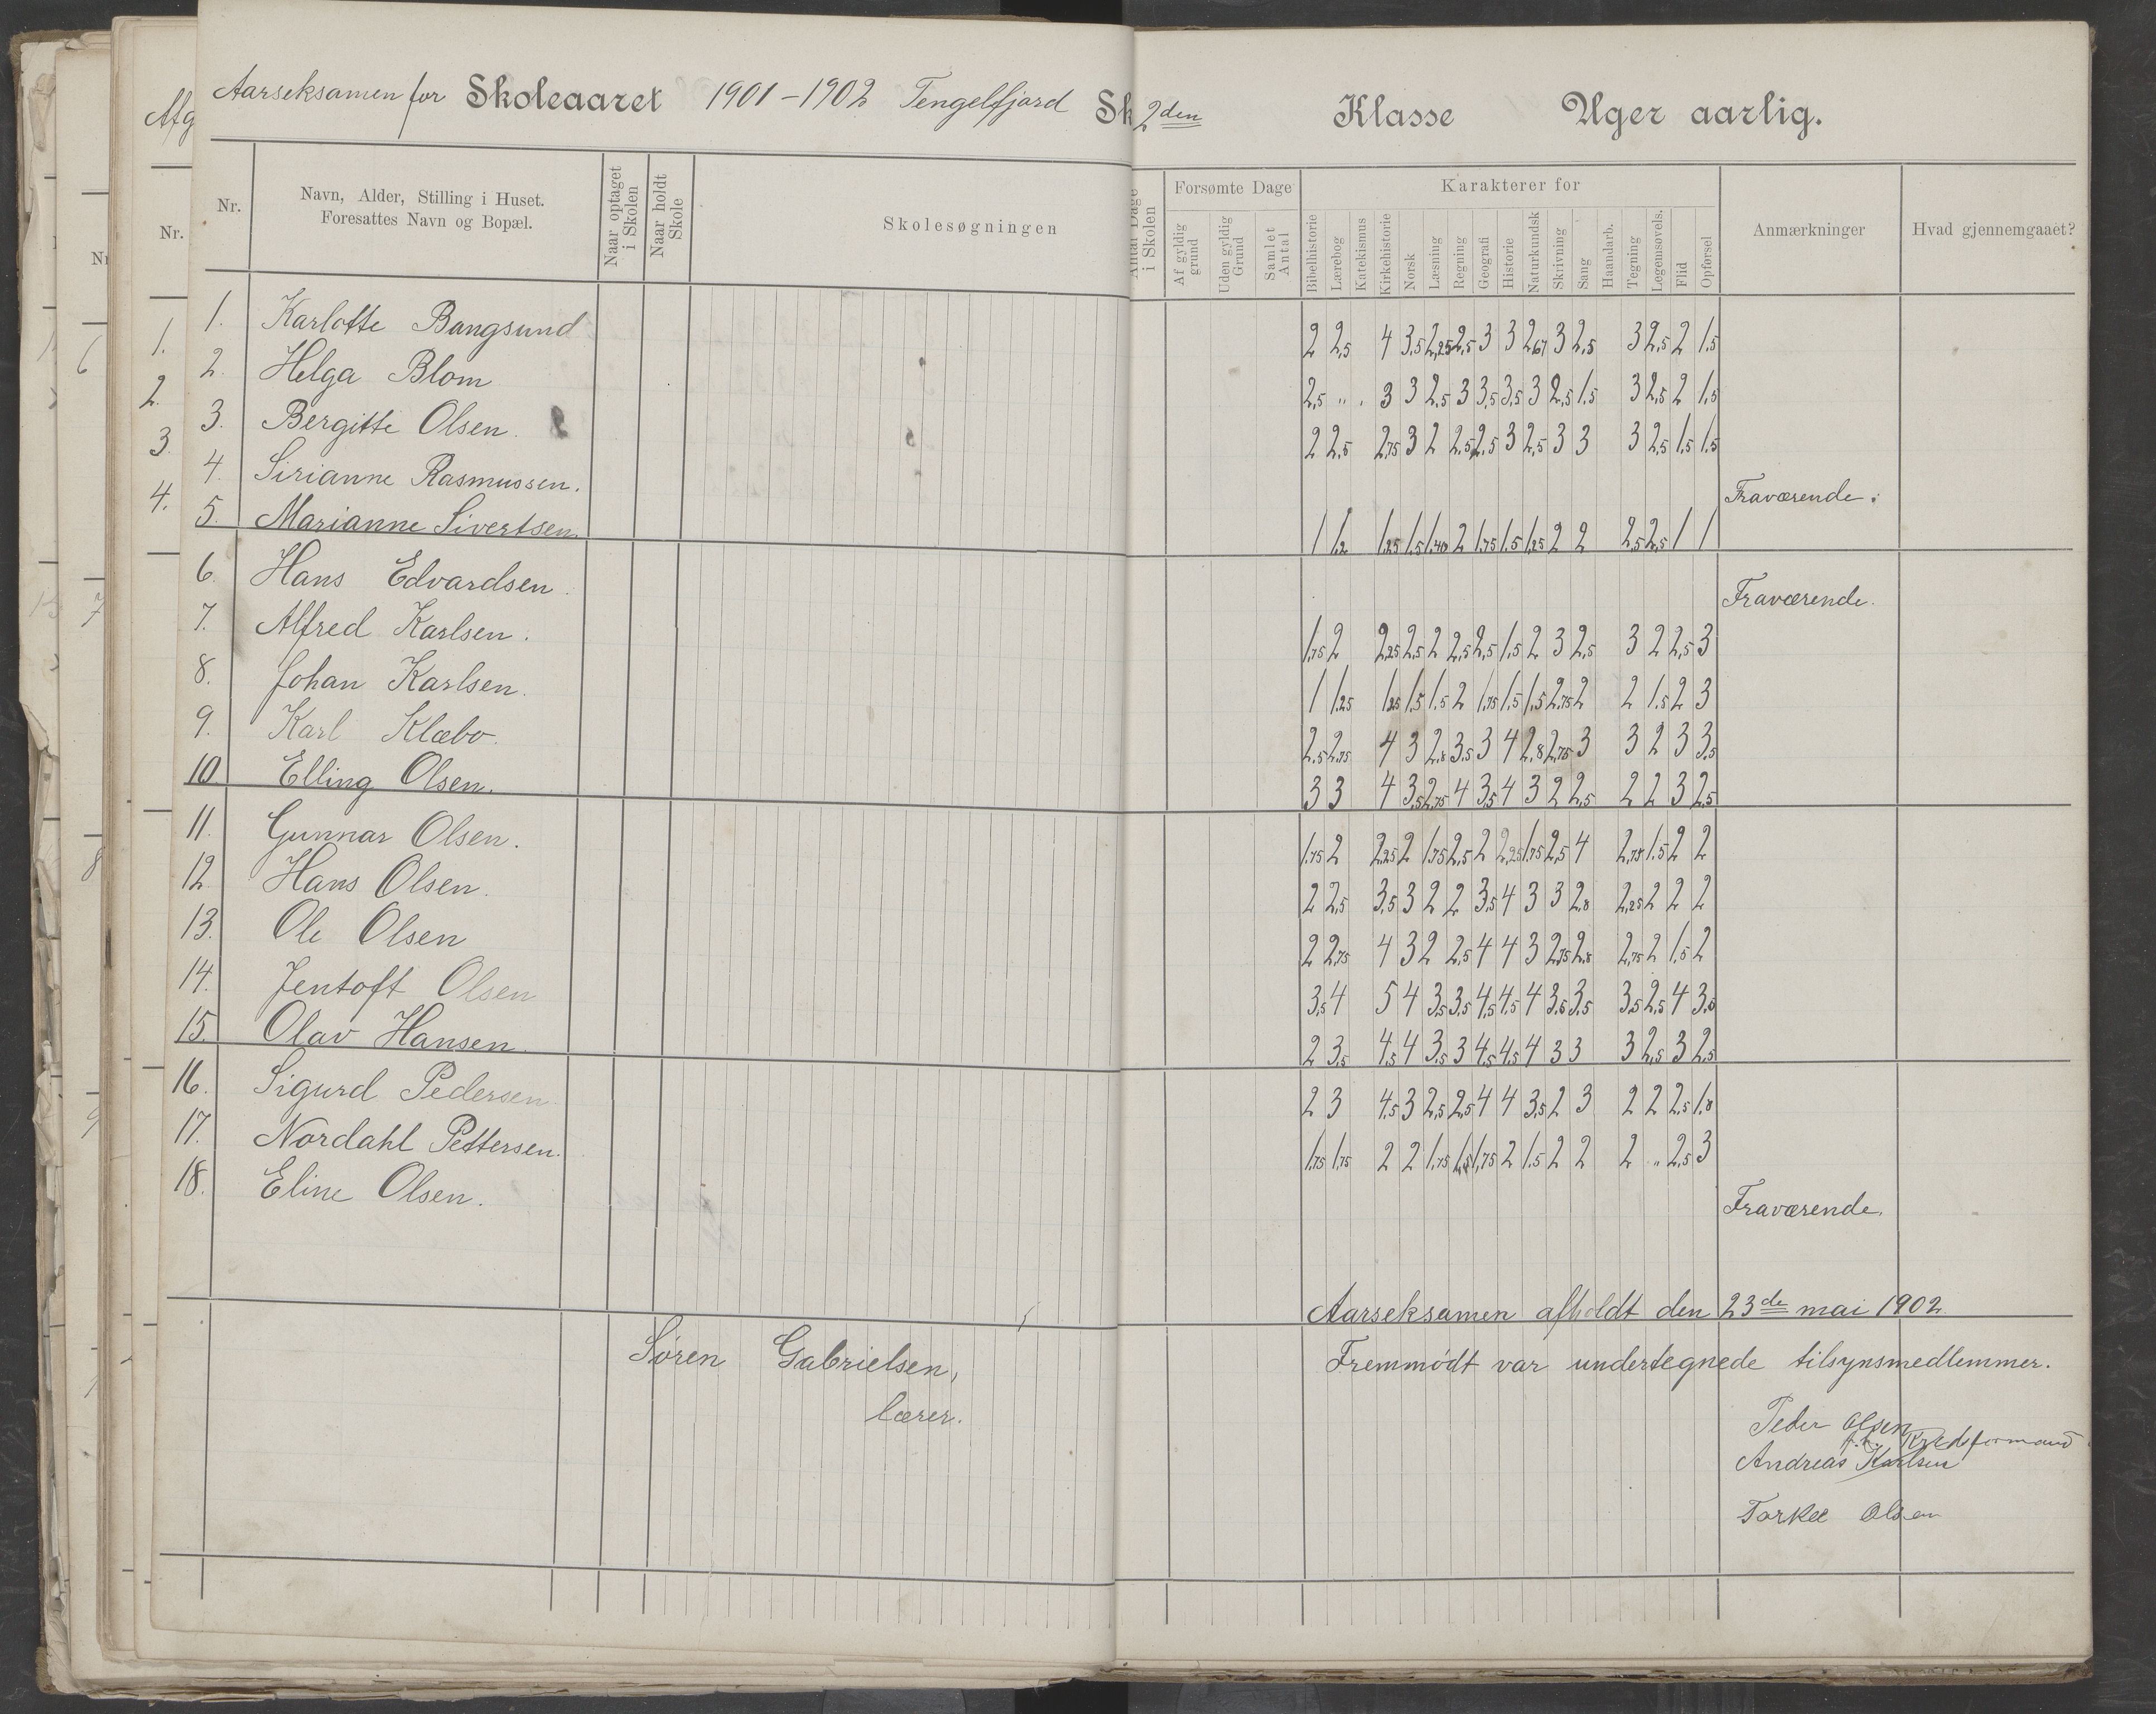 Aarseksamen for Skoleaaret 1901-1902 Tengelfjord Sk 2den Klasse Uger aarlig.
Nr. Navn, Alder, Stilling i Huset. Foresattes Navn og Bopæl. Naar optaget i Skolen Naar holdt Skole Skolesøgningen Antal Dage i Skolen Forsømte Dage Karakterer for Anmærkninger Hvad gjennemgaaet?
Af gyldig grund Uden gyldig Grund Samlet Antal Bibelhistorie Lærebog Katekismus Kirkehistorie Norsk Læsning Regning Geografi Historie Naturkundsk Skrivning Sang Haandarb. Tegning Legemsøvels. Flid Opførsel
1. Karlotte Bangsund 2 2,5 4 3,5 2,25 2,5 3 3 2,67 3 2,5 3 2,5 2 1,5
2. Helga Blom 2,5 " . 3 3 2,5 3 3,5 3,5 3 2,5 1,5 3 2,5 2 1,5
3. Bergitte Olsen. 2 2,5 2,75 3 2 2,5 2,5 3 2,5 3 3 3 2,5 1,5 1,5
4. Sirianne Rasmussen. Fraværende.
5. Marianne Sivertsen. 1 1,2 1,25 1,5 1,40 2 1,75 1,5 1,25 2 2 2,5 2,5 1 1
6. Hans Edvardsen. Fraværende.
7. Alfred Karlsen. 1,75 2 2,25 2,5 2 2,5 2,5 1,5 2 3 2,5 3 2 2,5 3
8. Johan Karlsen. 1 1,25 1,25 1,5 1,5 2 1,75 1,5 1,5 2,75 2 2 1,5 2 3
9. Karl Klæbo. 2,5 2,75 4 3 2,8 3,5 3 4 2,8 2,75 3 3 2 3 3,5
10. Elling Olsen. 3 3 4 3,5 2,75 4 3,5 4 3 2 2,5 2 2 3 2,5
11. Gunnar Olsen. 1,75 2 2,25 2 1,75 2,5 2 2,25 1,75 2,5 4 2,75 1,5 2 2
12. Hans Olsen. 2 2,5 3,5 3 2 2 3,5 4 3 3 2,8 2,25 2 2 2
13. Ole Olsen 2 2,75 4 3 2 2,5 4 4 3 2,75 2,8 2,75 2 1,5 2
14. Jentoft Olsen 3,5 4 5 4 3,5 3,5 4,5 4,5 4 3,5 3,5 3,5 2,5 4 3,5
15. Olav Hansen. 2 3,5 4,5 4 3,5 3 4,5 4,5 4 3 3 3 2,5 3 2,5
16. Sigurd Pedersen. 2 3 4,5 3 2,5 2,5 4 4 3,5 2 3 2 2 2,5 1,8
17. Nordahl Pettersen. 1,75 1,75 2 2 1,75 1,5 1,75 2 1,5 2 2 2 " 2,5 3
18. Eline Olsen. Fraværende.
Aarseksamen afholdt den 23de mai 1902
Søren Gabrielsen, Fremmødt var undertegnede tilsynsmedlemmer.
lærer. Peder Olsen
Kredsformand
Andreas Karlsen
Torkel Olsen